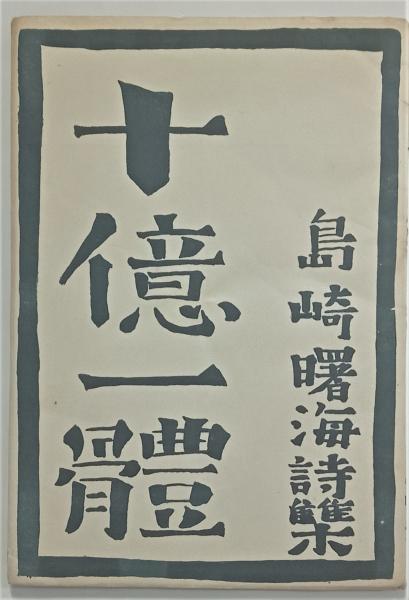 島崎曙海詩集
十億一體